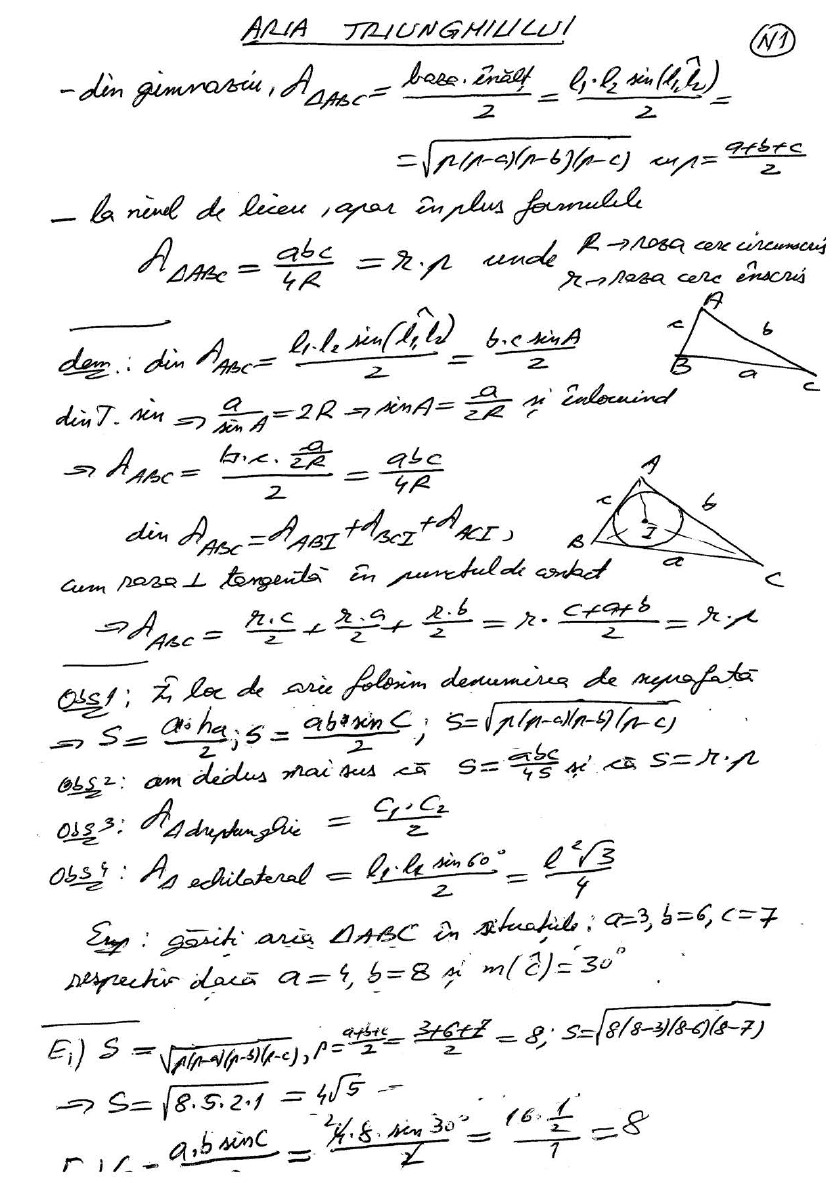 ARIA TRIUNGHIULUI
N1
- din gimnaziu, A_ΔABC = baza · înălț / 2 = l₁·l₂ sin(l₁,l₂) / 2 =
= √p(p-a)(p-b)(p-c) cu p = a+b+c / 2
- la nivel de liceu, apar în plus formulele
A_ΔABC = abc / 4R = r·p unde R → raza cerc circumscris
r → raza cerc înscris
A
c b
B a C
dem.: din A_ABC = l₁·l₂ sin(l₁,l₂) / 2 = b·c sinA / 2
din T. sin ⇒ a / sin A = 2R ⇒ sinA = a / 2R și înlocuind
⇒ A_ABC = b·c· a/2R / 2 = abc / 4R
A
c b
B I
a C
din A_ABC = A_ABI + A_BCI + A_ACI,
cum raza ⊥ tangentă în punctul de contact
⇒ A_ABC = r·c / 2 + r·a / 2 + r·b / 2 = r · c+a+b / 2 = r·p
Obs1: În loc de arie folosim denumirea de suprafață
⇒ S = a·ha / 2; S = ab·sin C / 2; S = √p(p-a)(p-b)(p-c)
Obs2: am dedus mai sus că S = abc / 4S și că S = r·p
Obs3: A_Δdreptunghic = C₁·C₂ / 2
Obs4: A_Δ echilateral = l₁·l₂ sin60° / 2 = l²√3 / 4
Exp: găsiți aria ΔABC în situațiile: a=3, b=6, c=7
respectiv dacă a=4, b=8 și m(ĉ)=30°
Ei) S = √p(p-a)(p-b)(p-c), p = a+b+c / 2 = 3+6+7 / 2 = 8; S = √8(8-3)(8-6)(8-7)
⇒ S = √8·5·2·1 = 4√5
a·b sinC = 4·8·sin 30° / 2 = 16·1/2 / 1 = 8